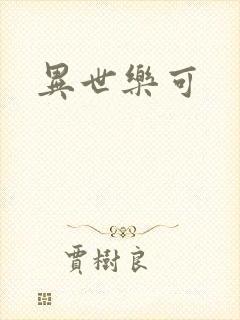 異世樂可
賈樹良